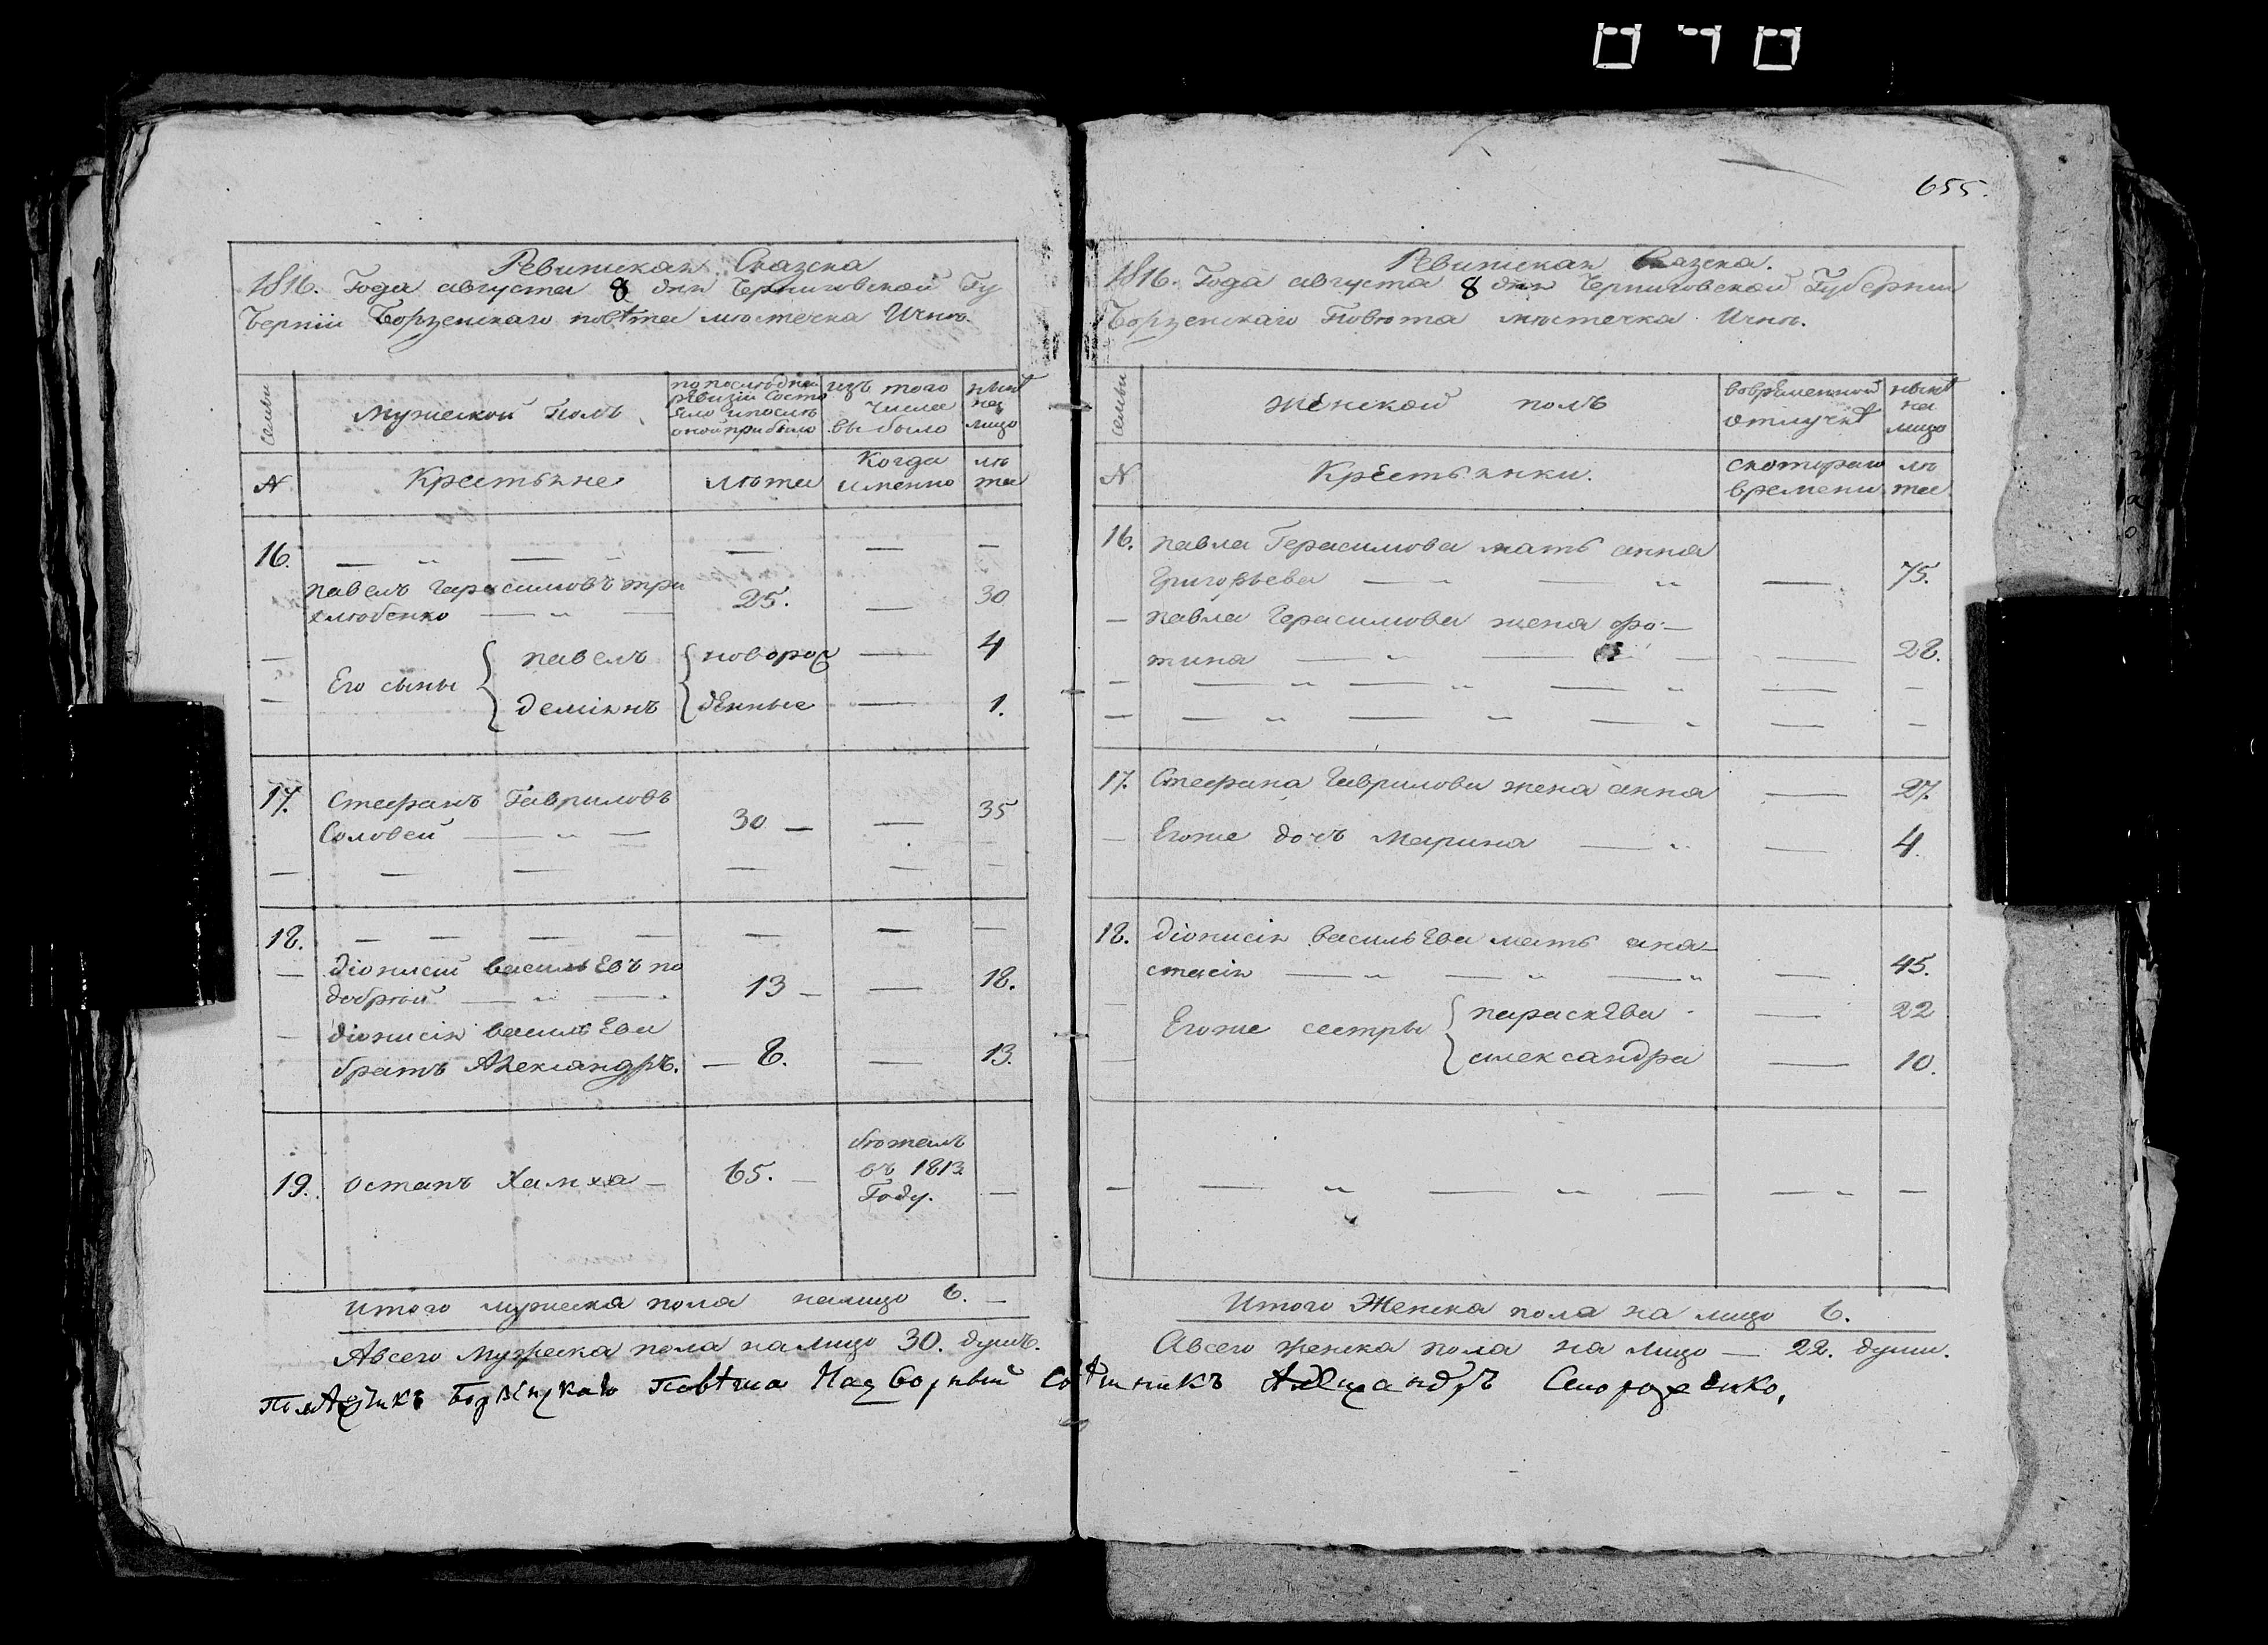 655.
Ревижская Сказка
1816. Года августа 8 дня Черниговской Гу
берніи Борзенскаго повѣта мѣстечка Ичнѣ.
семьи
мужеской полъ
по последней
ревизіи состо
яло и послѣ
оной прибыло
изъ того
числа
выбыло
нынѣ
на
лицо
N
Крестьяне
лѣта
Когда
именно
лѣ
та
16. — „ — „ — — —
павелъ Герасимовъ
хлюбенко — „ — 25. — 30
— Его сыны { павелъ { новорож — 4
— демiянъ денные — 1.
17. Стефанъ Гавриловъ
Соловей — „ — 30 — — 35
— — — — — —
18. — — — — — — —
— діонисій васильевъ по
добрiой — „ — 13 — — 18.
— діонисія васильева
братъ Александръ. — 8. — 13.
19. остапъ Хамха — 65. — бѣжалъ
въ 1813
Году. —
итого мужеска пола налицо 6. —
Авсего мужеска пола налицо 30. душъ.
Ревижская Сказка.
1816. Года августа 8 дня Черниговской Губерніи
Борзенскаго Повѣта мѣстечка Ичнѣ.
семьи
женской полъ
вовременной
отлучкѣ
нынѣ
на
лицо
N
Крестьянки.
скотораго
времени
лѣ
та
16. павла Герасимова мать анна
Григорьева — „ — „ — 75.
— павла Герасимова жена фо-
тина — „ — — — 28.
— — „ — „ — „ — —
— — „ — „ — „ — —
17. Стефана Гаврилова жена анна — 27.
— Егоже дочь Марина — „ — 4.
18. діонисія васильева мать ана-
стасія — „ — „ — „ — 45.
— Егоже сестры { параскева — 22
— александра — 10.
— — „ — „ — — „ —
Итого Женска пола на лицо 6.
Авсего женска пола на лицо — 22. души.
Повѣта Надворный Совѣтникъ Александръ Стороженко,